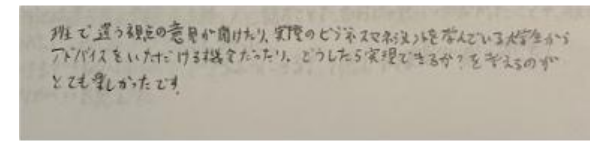 班で違う視点の意見が聞けたり、実際のビジネスマネジメントを学んでいる大学生から
アドバイスをいただける機会だったり、どうしたら実現できるか？を考えるのが
とても楽しかったです。